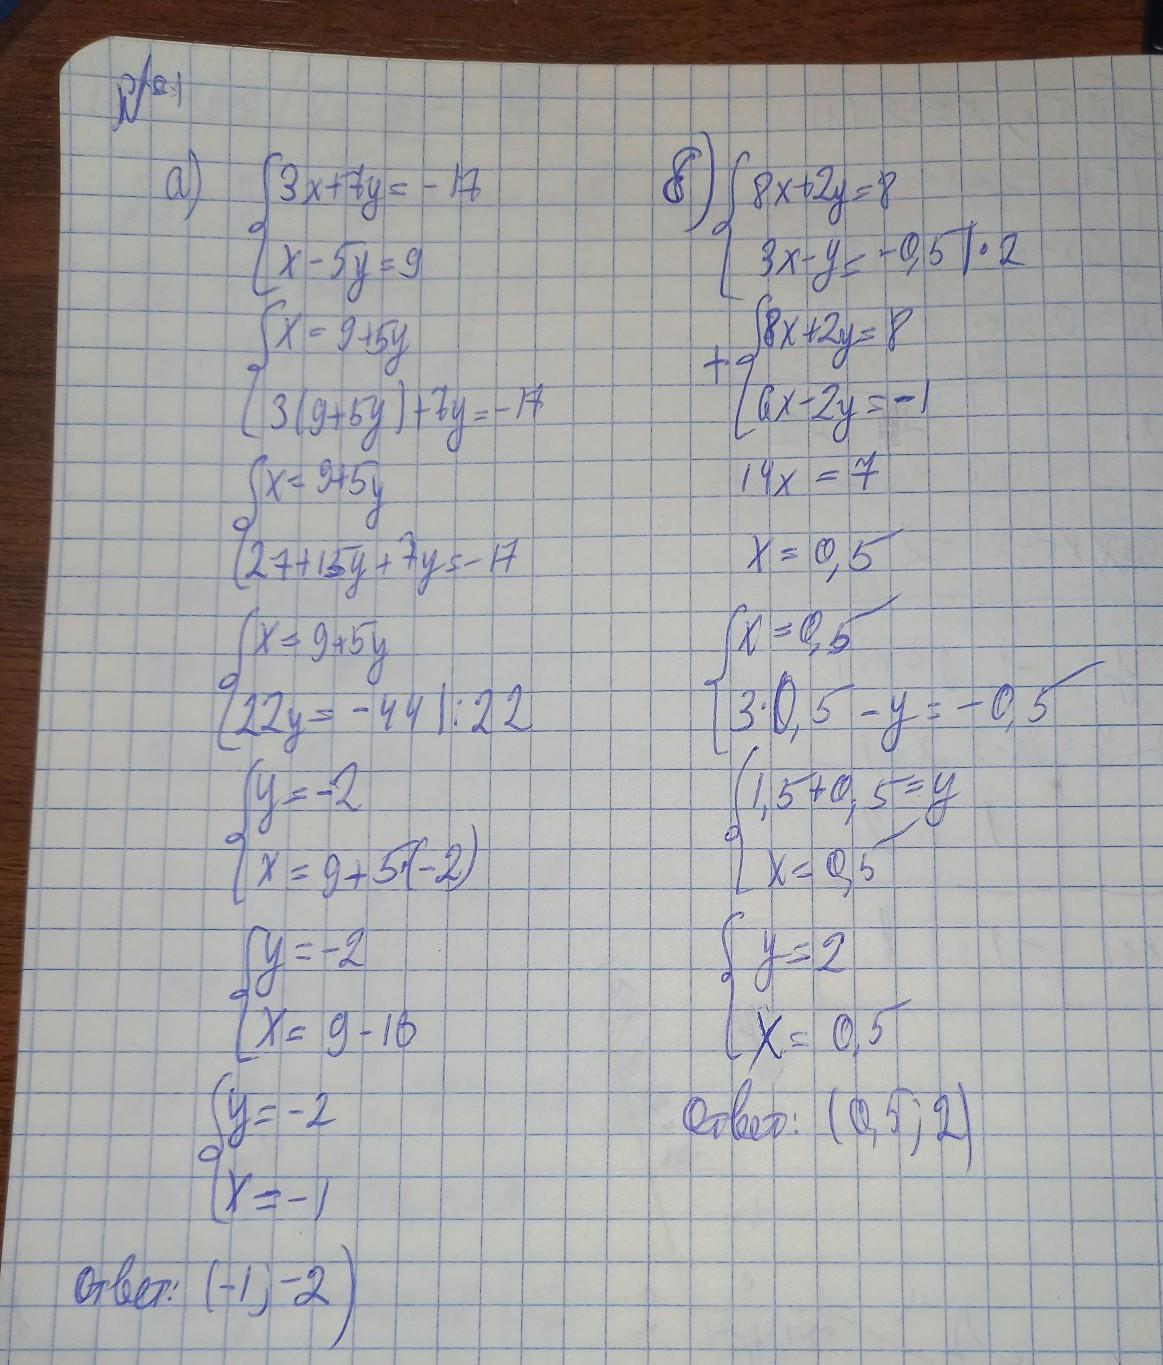 №1
а) { 3x+7y=-17
x-5y=9
{ x=9+5y
3(9+5y)+7y=-17
{ x=9+5y
27+15y+7y=-17
{ x=9+5y
22y=-44 |:22
{ y=-2
x=9+5·(-2)
{ y=-2
x=9-10
{ y=-2
x=-1
Ответ: (-1; -2)
б) { 8x+2y=8
3x-y=-0,5 |·2
+ { 8x+2y=8
6x-2y=-1
14x=7
x=0,5
{ x=0,5
3·0,5-y=-0,5
{ 1,5+0,5=y
x=0,5
{ y=2
x=0,5
Ответ: (0,5; 2)